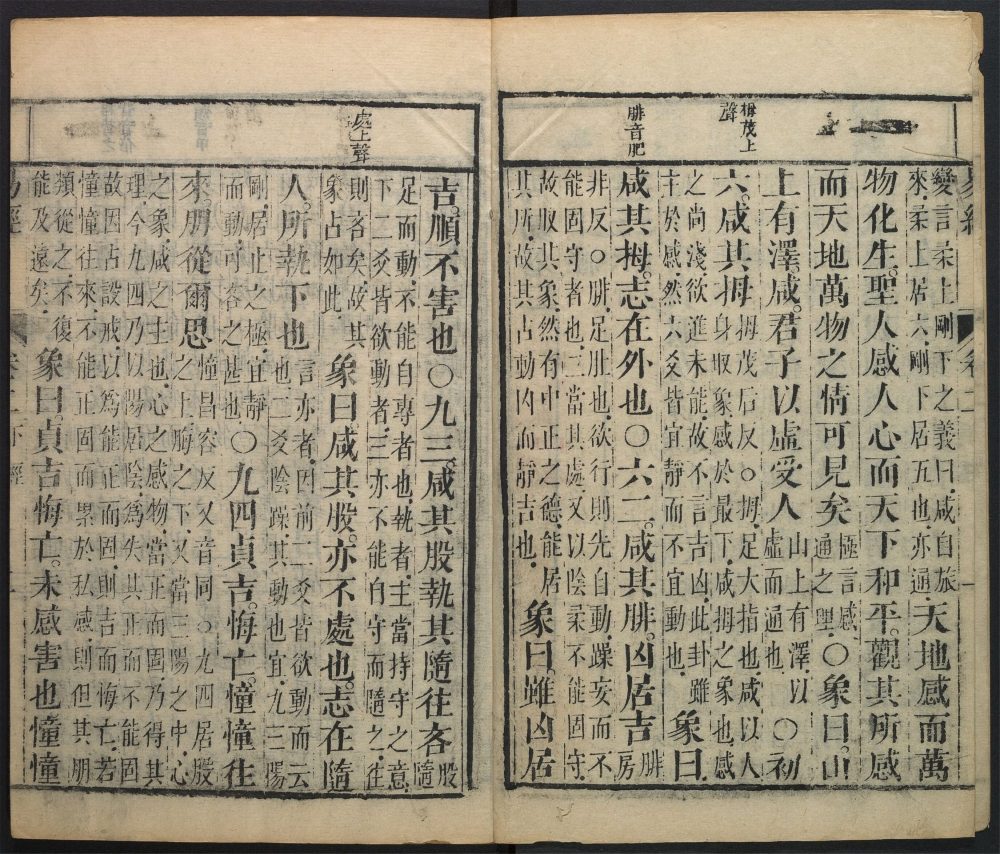 變言柔上剛下之義曰咸自旅
來柔上居六剛下居五也亦通
天地感而萬
物化生聖人感人心而天下和平觀其所感
而天地萬物之情可見矣
極言感
通之理
○象曰山
上有澤咸君子以虛受人
山上有澤以
虛而通也
○初
拇茂上
聲
六咸其拇
拇茂后反○拇足大指也咸以人
身取象感於最下咸拇之象也感
之尚淺欲進未能故不言吉凶此卦雖
主於感然六爻皆宜靜而不宜動也
象曰
腓音肥
咸其拇志在外也○六二咸其腓凶居吉
腓
房
非反○腓足肚也欲行則先自動躁妄而不
能固守者也二當其處又以陰柔不能固守
故取其象然有中正之德能居
其所故其占動凶而靜吉也
象曰雖凶居
吉順不害也○九三咸其股執其隨往吝
股
隨
足而動不能自專者也執者主當持守之意
下二爻皆欲動者三亦不能自守而隨之往
處上聲
則吝矣故其
象占如此
象曰咸其股亦不處也志在隨
人所執下也
言亦者因前二爻皆欲動而云
也二爻陰躁其動也宜九三陽
剛居止之極宜靜
而動可吝之甚也
○九四貞吉悔亡憧憧往
來朋從爾思
憧昌容反又音同○九四居股
之上脢之下又當三陽之中心
之象咸之主也心之感物當正而固乃得其
理今九四乃以陽居陰為失其正而不能固
故因占設戒以為能正而固則吉而悔亡若
憧憧往來不能正固而累於私感則但其朋
類從之不復
能及遠矣
象曰貞吉悔亡未感害也憧憧